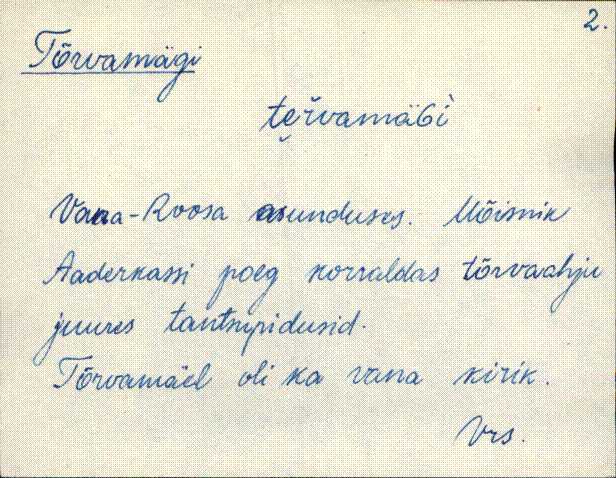 2.
Tõrvamägi
te̮rvamäGì
Vana-Roosa asunduses. Mõisnik
Aaderkassi poeg korraldas tõrvaahju
juures tantsupidusid.
Tõrvamäel oli ka vana kirik.
Vrs.